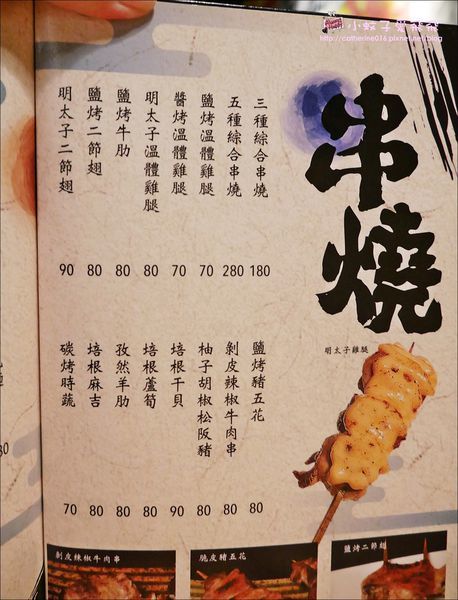 小蚊子愛趴趴
http://catherine016.pixnet.net/blog
串燒
三種綜合串燒 180
五種綜合串燒 280
鹽烤溫體雞腿 70
醬烤溫體雞腿 70
明太子溫體雞腿 80
鹽烤牛肋 80
鹽烤二節翅 80
明太子二節翅 90
明太子雞腿
鹽烤豬五花 80
剝皮辣椒牛肉串 80
柚子胡椒松阪豬 80
培根干貝 90
培根蘆筍 80
孜然羊肋 80
培根麻吉 80
碳烤時蔬 70
剝皮辣椒牛肉串
脆皮豬五花
鹽烤二節翅